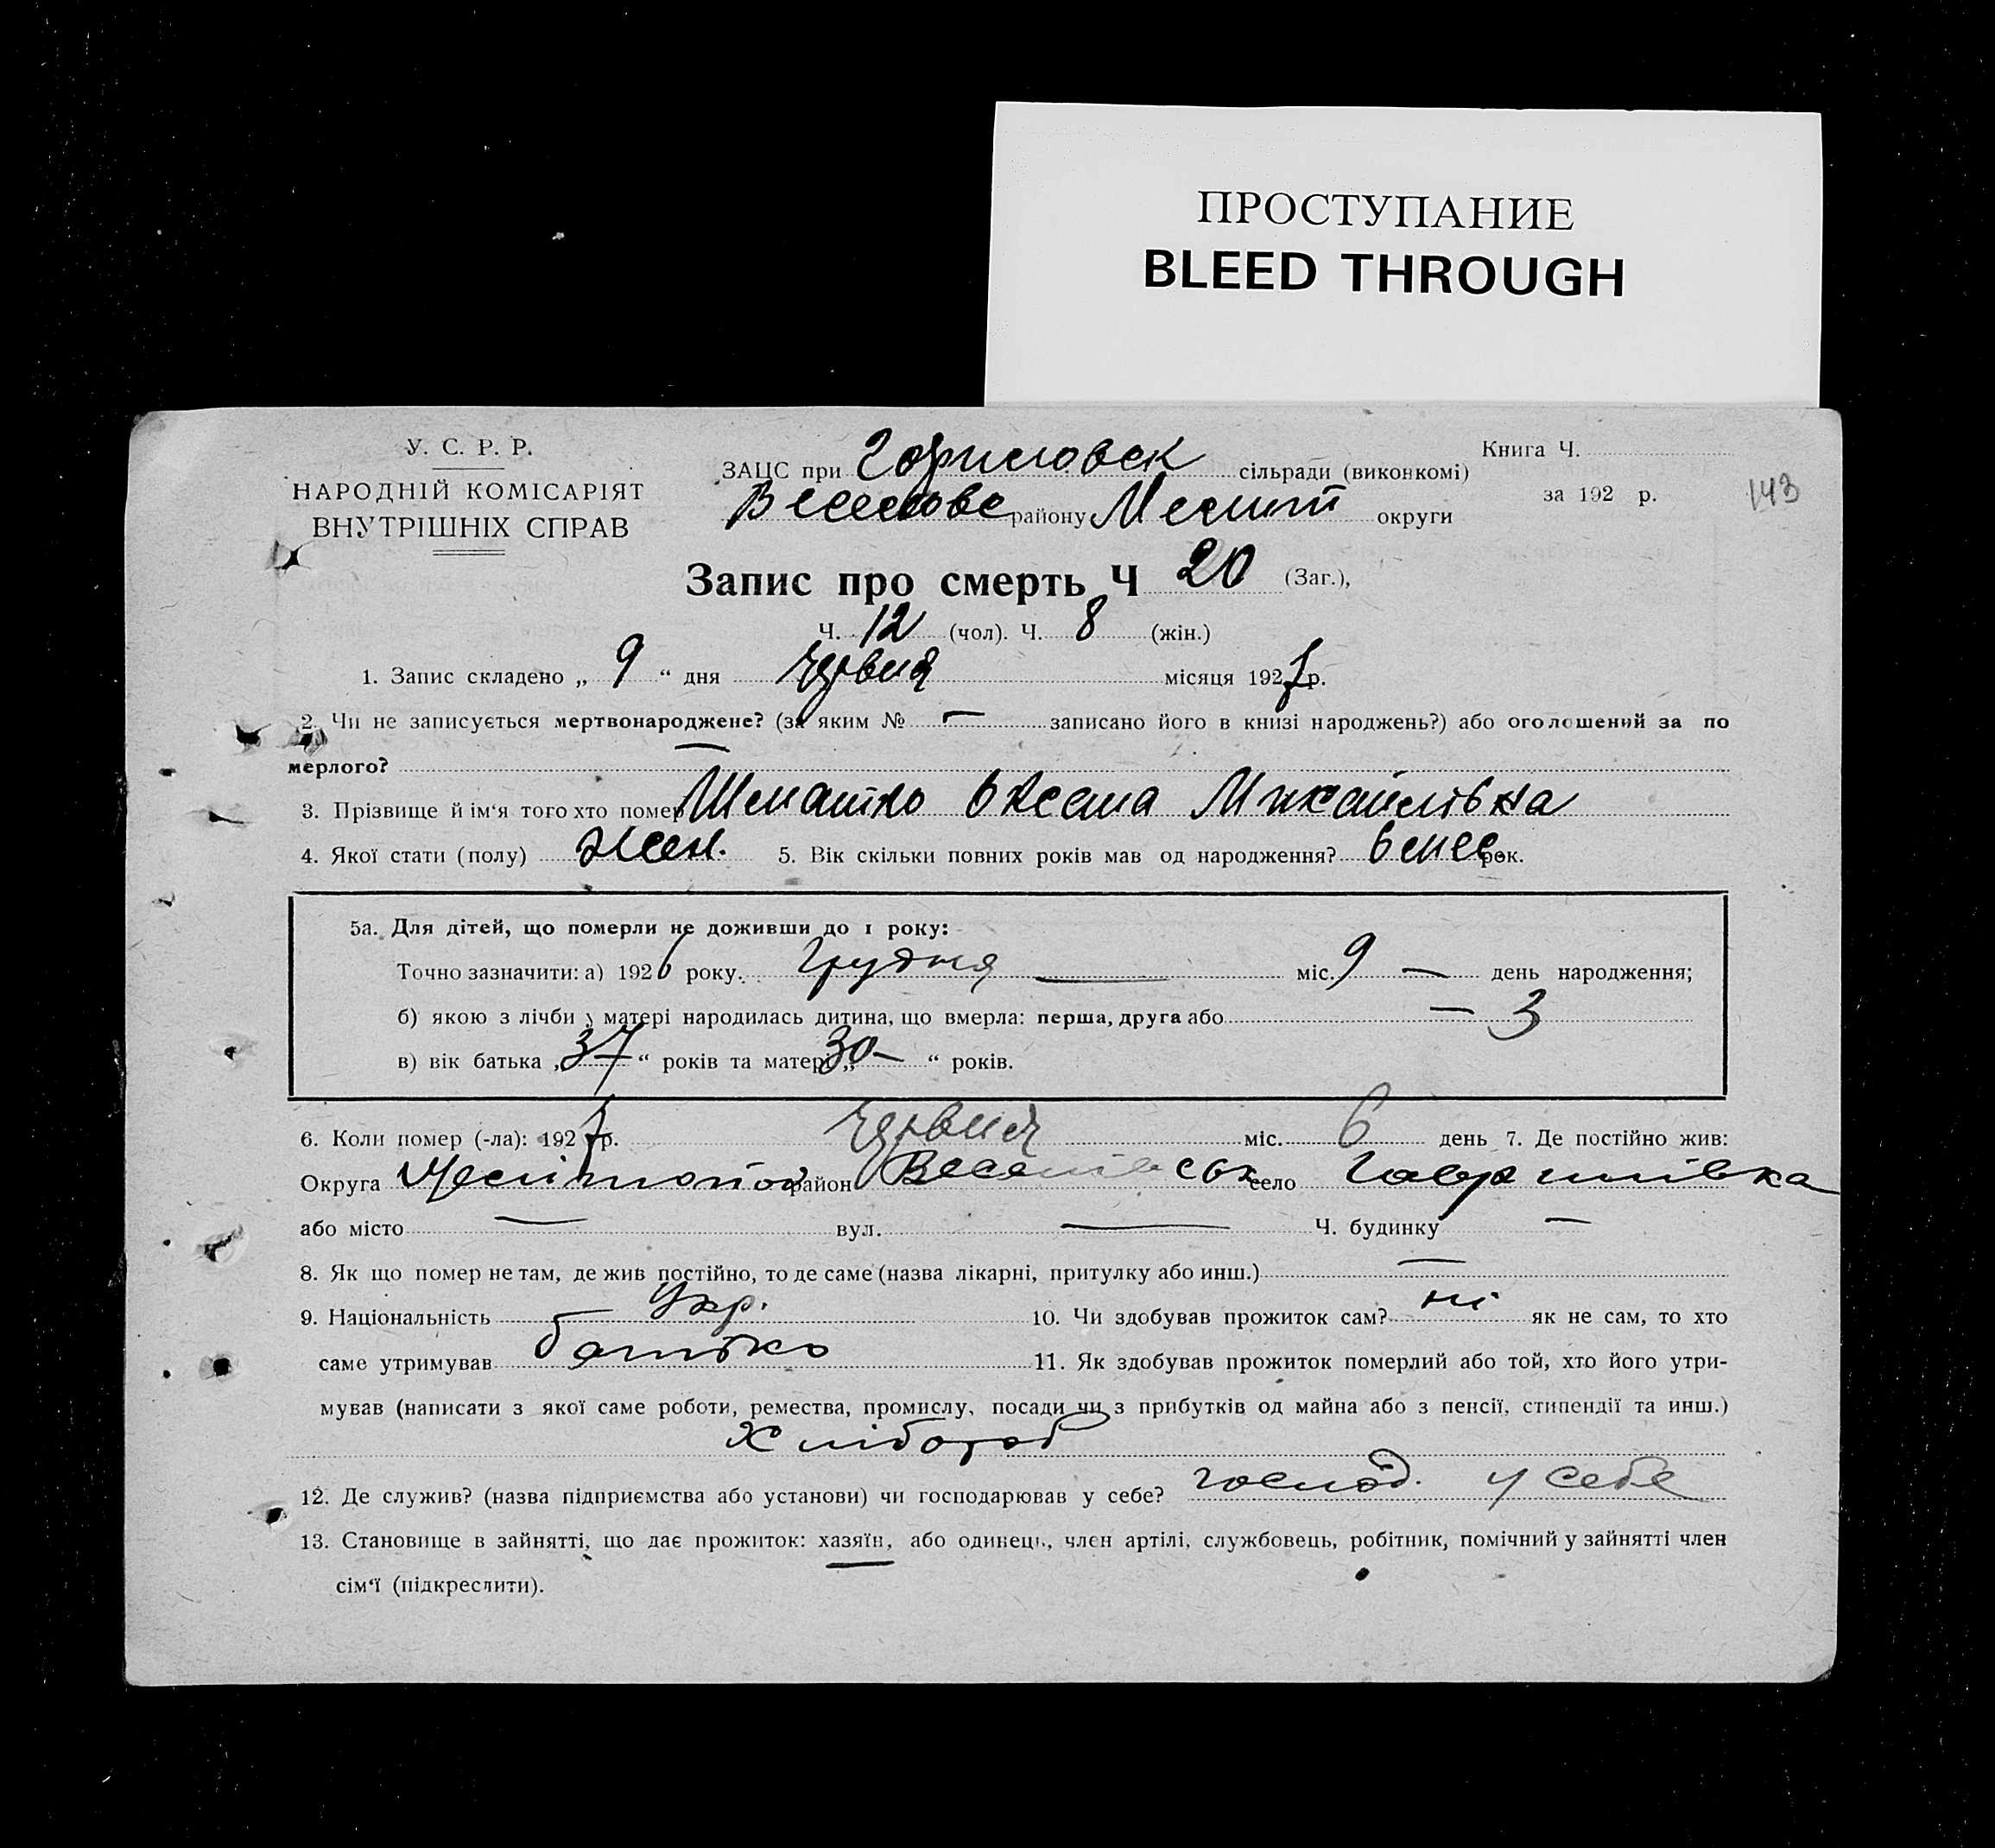 ПРОСТУПАНИЕ
BLEED THROUGH
У. С. Р. Р.
НАРОДНІЙ КОМІСАРІЯТ
ВНУТРІШНІХ СПРАВ
ЗАЦС при сільради (виконкомі)
району Меліт округи
Книга Ч.
за 192 р.
143
Запис про смерть Ч 20 (Заг.),
Ч. 12 (чол). Ч. 8 (жін.)
1. Запис складено „ 9 “ дня Червня місяця 1927 р.
2. Чи не записується мертвонароджене? (за яким № — записано його в книзі народжень?) або оголошений за по
мерлого? —
3. Прізвище й ім‘я того хто помер Шматко Оксана Михайлівна
4. Якої стати (полу) Жен. 5. Вік скільки повних років мав од народження? 6 мес рок.
5а. Для дітей, що померли не доживши до 1 року:
Точно зазначити: а) 1926 року. Грудня — міс. 9 — день народження;
б) якою з лічби у матері народилась дитина, що вмерла: перша, друга або — 3
в) вік батька „ 37 “ років та матері „ 30 — “ років.
6. Коли помер (-ла): 1927 р. Червня міс. 6 день 7. Де постійно жив:
Округа Мелітопол район Веселівськ село Гаврилівка
або місто — вул. — Ч. будинку —
8. Як що помер не там, де жив постійно, то де саме (назва лікарні, притулку або инш.) —
9. Національність — Укр. 10. Чи здобував прожиток сам? ні як не сам, то хто
саме утримував батько 11. Як здобував прожиток померлий або той, хто його утри-
мував (написати з якої саме роботи, ремества, промислу, посади чи з прибутків од майна або з пенсії, стипендії та инш.)
Хлібороб
12. Де служив? (назва підприємства або установи) чи господарював у себе? господ. у себе
13. Становище в зайнятті, що дає прожиток: хазяїн, або одинець, член артілі, службовець, робітник, помічний у зайнятті член
сім‘ї (підкреслити).